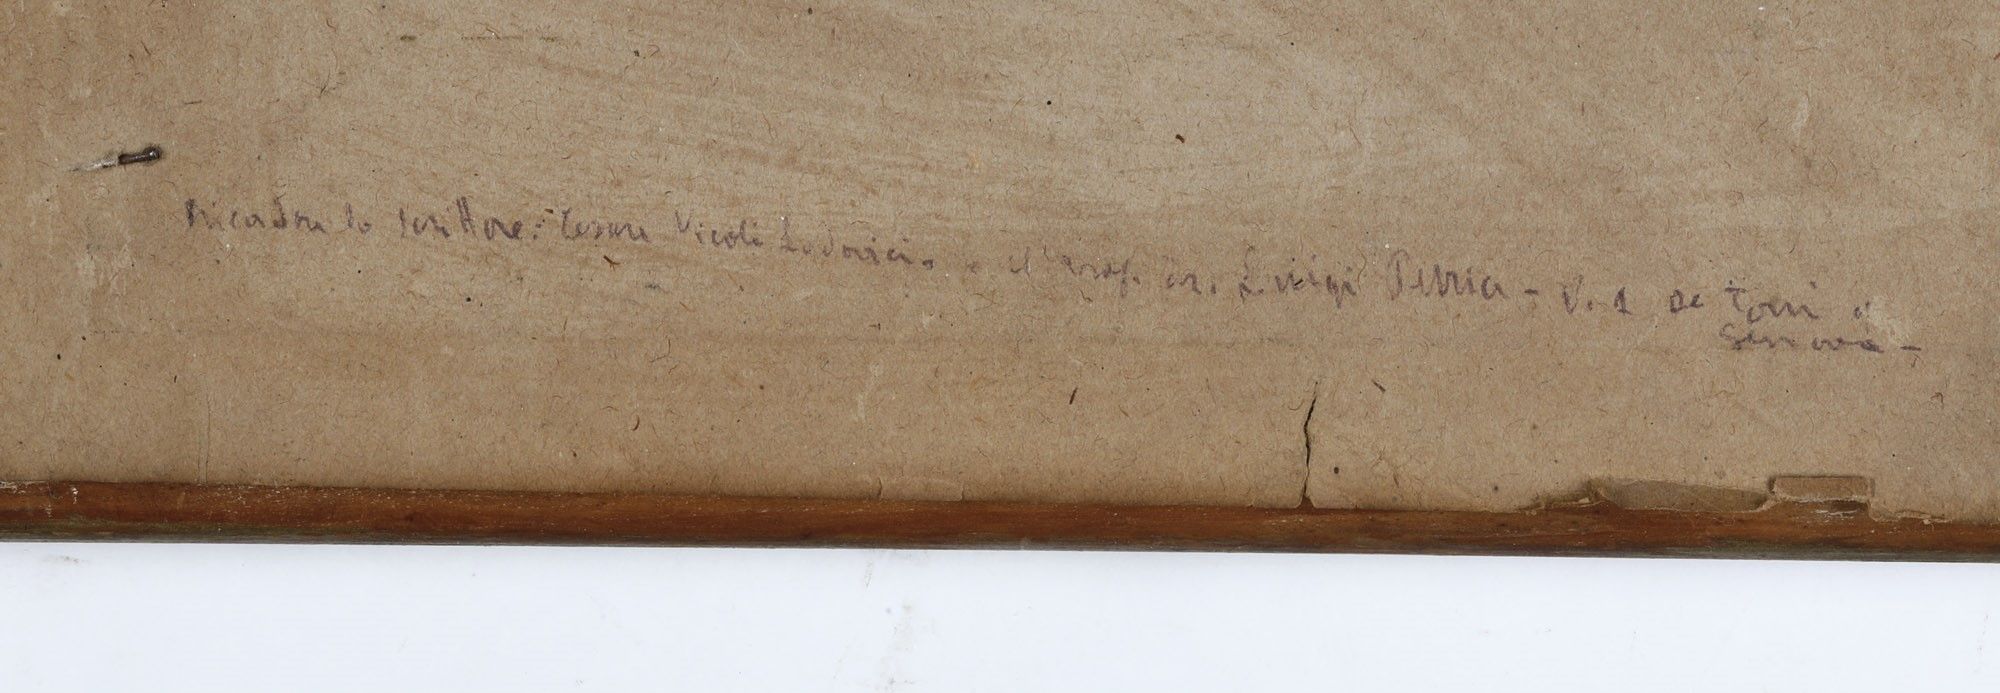 lo scrittore: Cesare Vico Lodovici - il prof. Dr. Luigi Perria - V. 1 De Toni a
Genova -